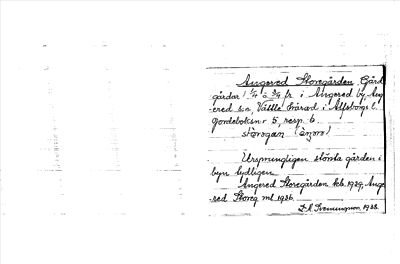 Angered Storegården Gård
gårdar 1 1/4 à 3/4 fr i Angered by, Ang-
ered s:a Vättle härad i Älfsborgs l.
Jordeboksnr 5, resp. 6.
storogan
Ursprungligen största gården i
byn tydligen.
Angered Storegården kb. 1929, Ange
red Storeg ml 1936.
1938.